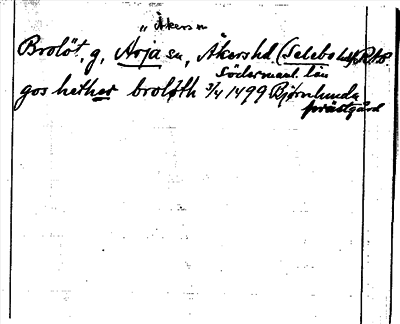 „ Åkers sn
Brolöt, g, Aoja sn, Åkershd (Selebo hd) RAp.
Södermanl. län
gos hether broløth 3/4 1499 Bjørnlunda
prästgård